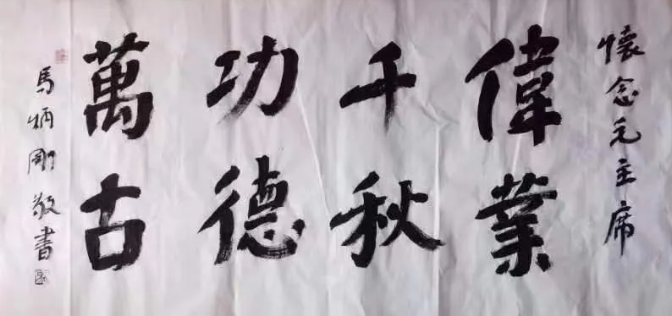 懷念毛主席
偉業
千秋
功德
萬古
馬炳剛敬書